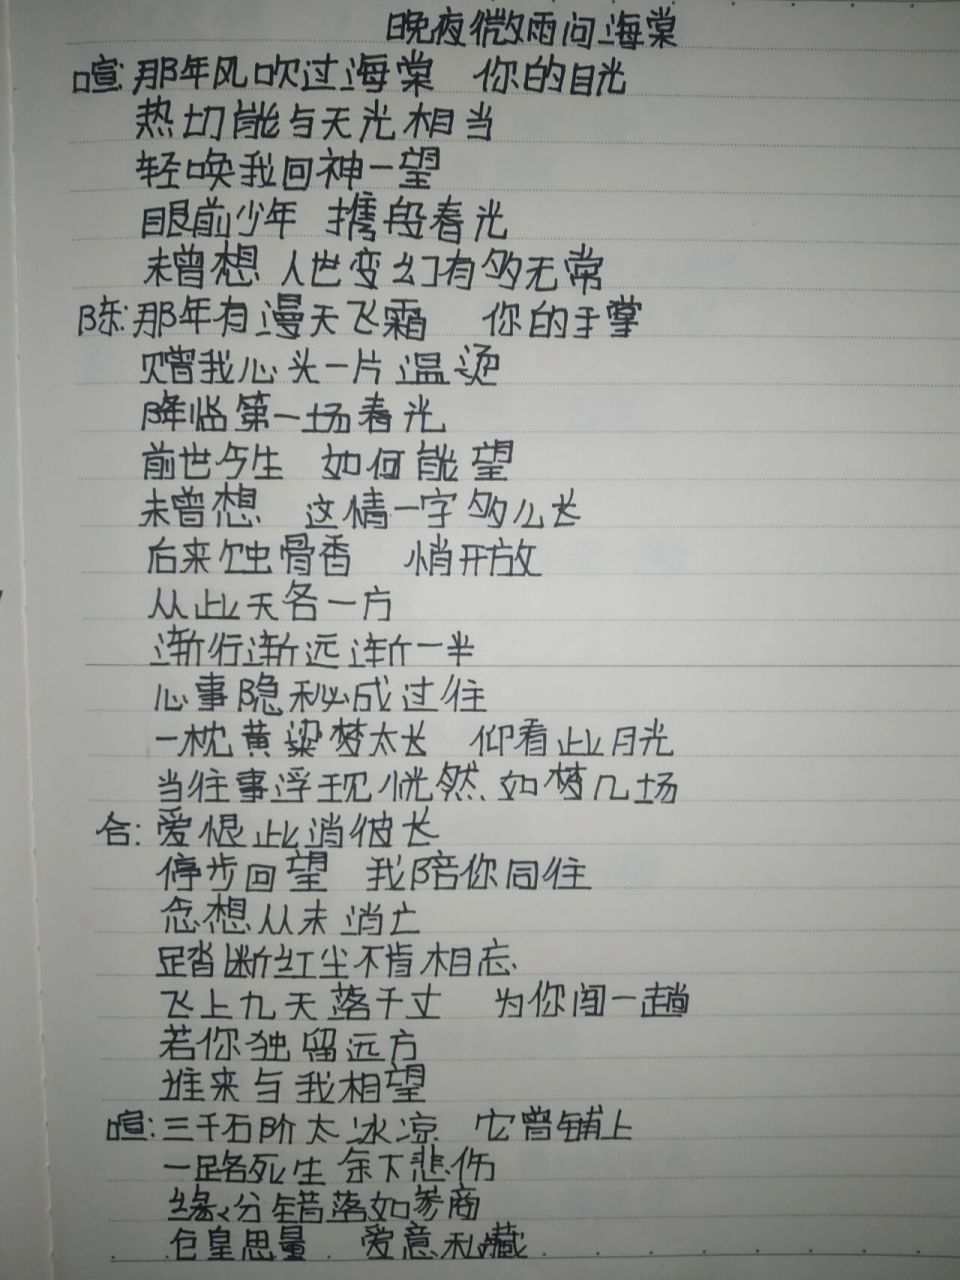 晚夜微雨问海棠
喧:那年风吹过海棠 你的目光
热切能与天光相当
轻唤我回神一望
眼前少年 携段春光
未曾想 人世变幻有多无常
陈:那年有漫天飞霜 你的手掌
赠我心头一片温烫
降临第一场春光
前世今生 如何能望
未曾想 这情一字多么长
后来蚀骨香 悄开放
从此天各一方
渐行渐远渐一半
心事隐秘成过往
一枕黄粱梦太长 仰看此月光
当往事浮现恍然如梦几场
合:爱恨此消彼长
停步回望 我陪你同往
念想从未消亡
踏断红尘不肯相忘
飞上九天落千丈 为你闯一趟
若你独留远方
谁来与我相望
喧:三千石阶太冰凉 它曾铺上
一路死生余下悲伤
缘分错落如参商
仓皇思量 爱意私藏